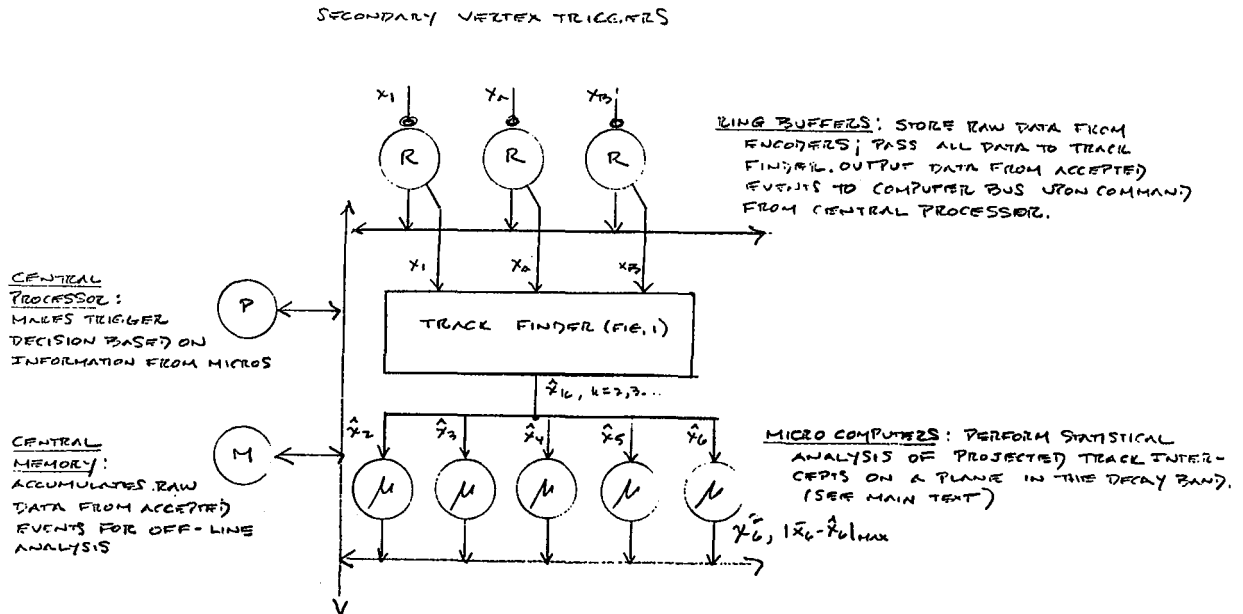 SECONDARY VERTEX TRIGGERS
x1 x4 xB'
R R R
RING BUFFERS: STORE RAW DATA FROM
ENCODERS; PASS ALL DATA TO TRACK
FINDER. OUTPUT DATA FROM ACCEPTED
EVENTS TO COMPUTER BUS UPON COMMAND
FROM CENTRAL PROCESSOR.
x1 x4 xB
CENTRAL
PROCESSOR:
MAKES TRIGGER
DECISION BASED ON
INFORMATION FROM MICROS
P
TRACK FINDER (FIG. 1)
x̂k, k=2,3...
x̂2 x̂3 x̂4 x̂5 x̂6
CENTRAL
MEMORY:
ACCUMULATES RAW
DATA FROM ACCEPTED
EVENTS FOR OFF-LINE
ANALYSIS
M
μ μ μ μ μ
MICRO COMPUTERS: PERFORM STATISTICAL
ANALYSIS OF PROJECTED TRACK INTER-
CEPTS ON A PLANE IN THE DECAY BAND.
(SEE MAIN TEXT)
x̄6, |x̄6-x̂6|MAX